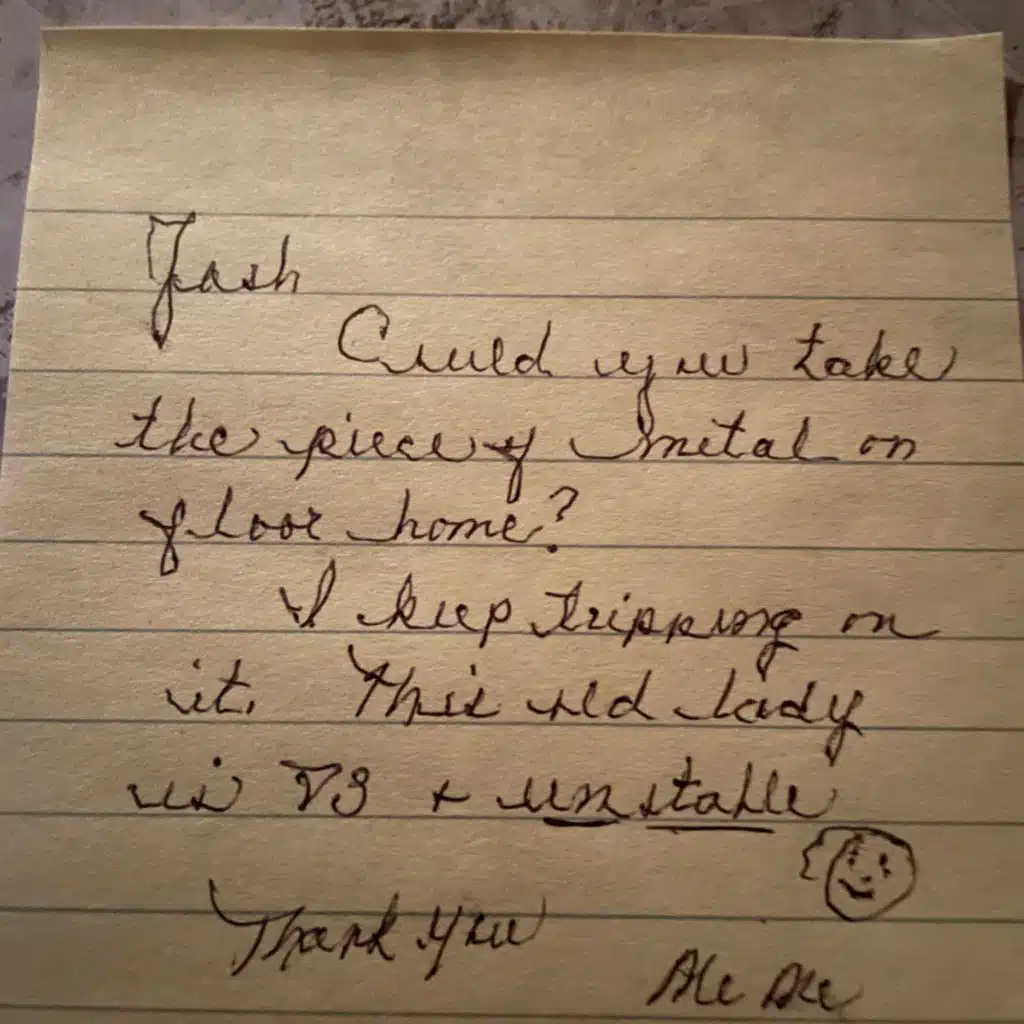 Josh
Could you take
the piece of metal on
floor home?
I keep tripping on
it. This old lady
is 73 + unstable
Thank you